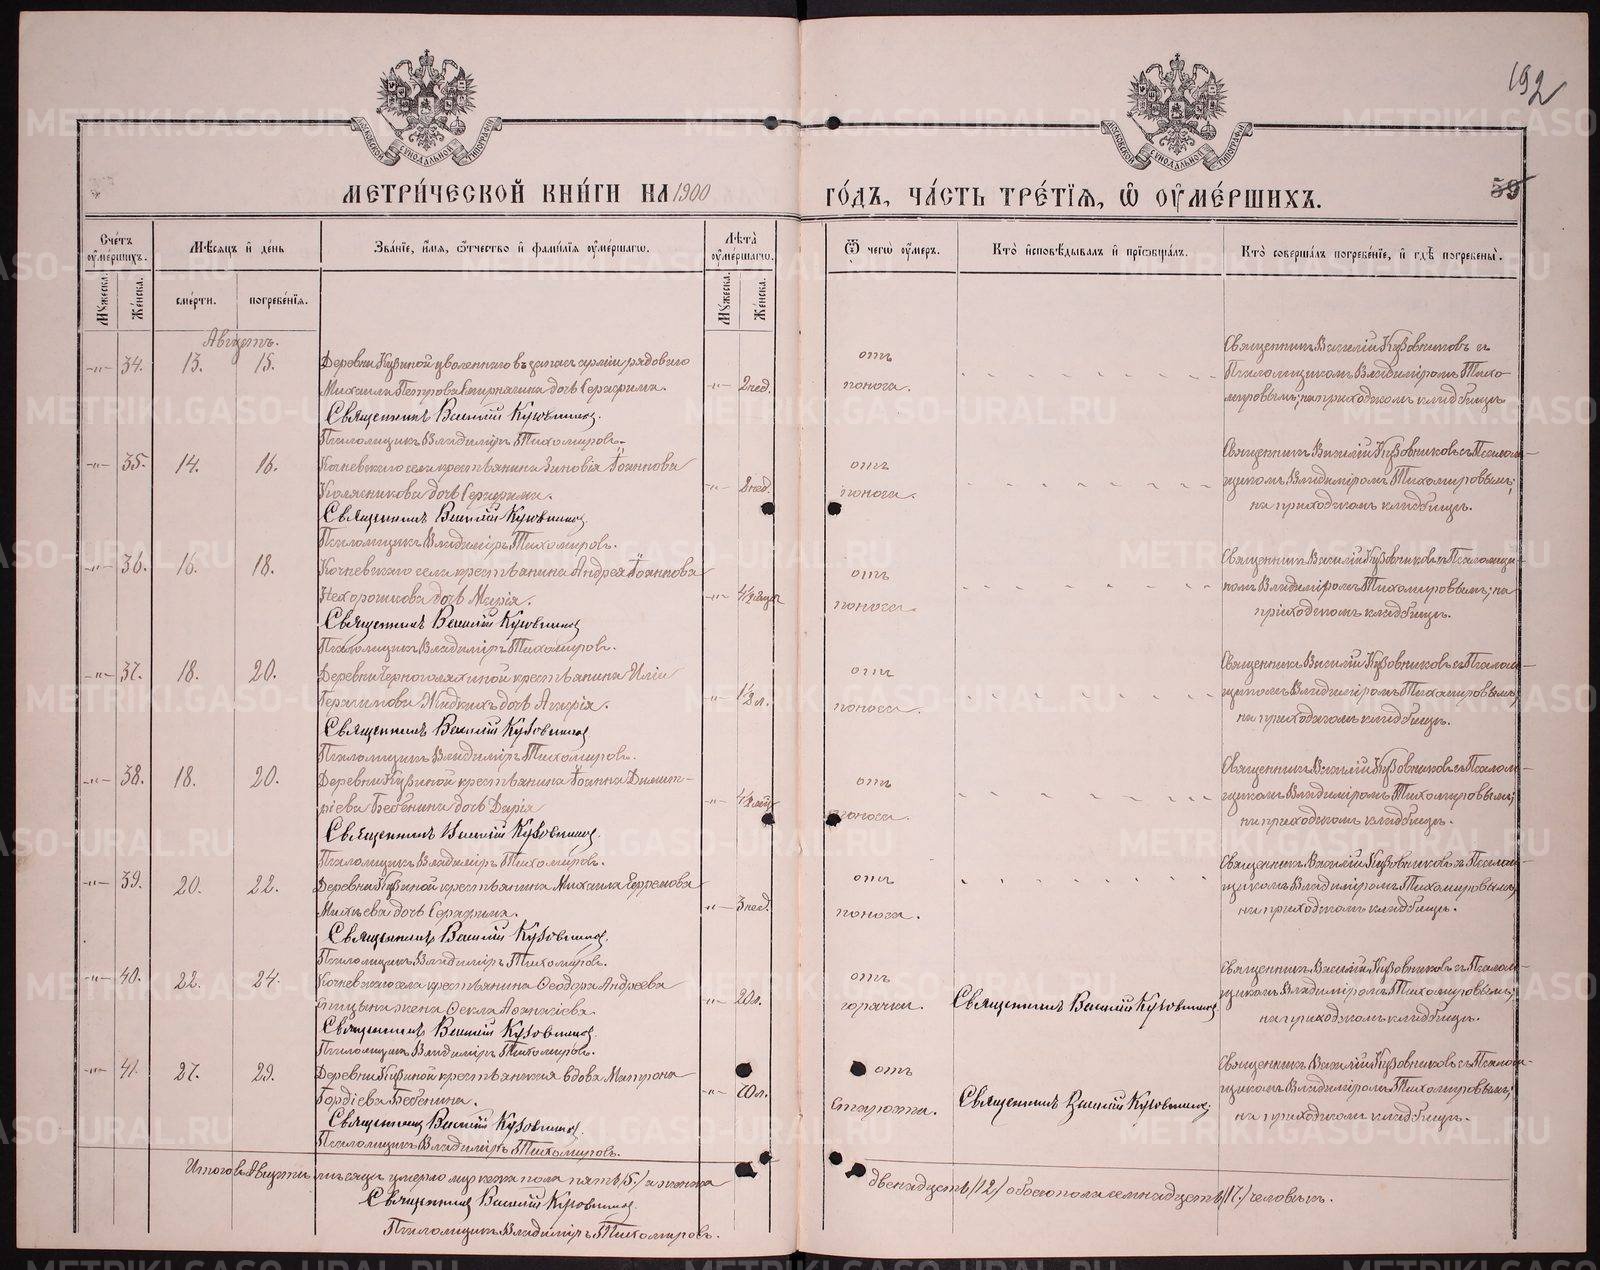 192
МОСКОВСКОЙ СѴНОДАЛЬНОЙ ТИПОГРАФІИ
МОСКОВСКОЙ СѴНОДАЛЬНОЙ ТИПОГРАФІИ
МЕТРИ́ЧЕСКОЙ КНИ́ГИ НА 1900
ГО́ДЪ, ЧА́СТЬ ТРЕ́ТІѦ, Ѡ҆ ОУ҆МЕ́РШИХЪ.
59
Сче́тъ оу҆ме́ршихъ.
Мꙋ́жеска.
Же́нска.
Мѣ́сяцъ и҆ де́нь
сме́рти.
погребе́нїѧ.
Зва́нїе, и҆́мѧ, ѻ҆́тчество и҆ фами́лїѧ оу҆ме́ршагѡ.
Лѣ̀та оу҆ме́ршагѡ.
Мꙋ́жеска.
Же́нска.
Ѿ чегѡ̀ оу҆́меръ.
Кто̀ и҆сповѣ́дывалъ и҆ прїѡбща́лъ.
Кто̀ соверша́лъ погребе́нїе, и҆ гдѣ̀ погребены̀.
Августъ.
-"- 34. 13. 15. Деревни Кузиной уволеннаго въ запас арміи рядоваго
Михаила Петрова Смирнягина дочь Серафима. -"- 2 нед.
Священникъ Василій Кузовников.
Псаломщикъ Владиміръ Тихомировъ.
отъ
поноса.
Священникъ Василій Кузовниковъ с
Псаломщикомъ Владиміромъ Тихо-
мировымъ; на приходском кладбищѣ.
-"- 35. 14. 16. Кочневскаго села крестьянина Зиновія Іоаннова
Колясникова дочь Серафима. -"- 2 нед.
Священникъ Василій Кузовников.
Псаломщикъ Владиміръ Тихомировъ.
отъ
поноса.
Священникъ Василій Кузовниковъ с Псалом-
щикомъ Владиміромъ Тихомировымъ;
на приходском кладбищѣ.
-"- 36. 16. 18. Кочневскаго села крестьянина Андрея Іоаннова
Нехорошкова дочь Марія. -"-
Священникъ Василій Кузовников
Псаломщикъ Владиміръ Тихомировъ.
отъ
поноса.
Священникъ Василій Кузовниковъ с Псаломщи-
комъ Владиміромъ Тихомировымъ; на
приходскомъ кладбищѣ.
-"- 37. 18. 20. Деревни Черноголяхиной крестьянина Иліи
Герасимова Жидкихъ дочь Агафія. -"- 1½ л.
Священникъ Василій Кузовников
Псаломщикъ Владиміръ Тихомировъ.
отъ
поноса.
Священникъ Василій Кузовниковъ с Псалом-
щикомъ Владиміромъ Тихомировымъ;
на приходскомъ кладбищѣ.
-"- 38. 18. 20. Деревни Кузиной крестьянина Іоанна Димит-
ріева Бебенина дочь Дарія -"-
Священникъ Василій Кузовников.
Псаломщикъ Владиміръ Тихомировъ.
отъ
поноса.
Священникъ Василій Кузовниковъ с Псалом-
щикомъ Владиміромъ Тихомировымъ;
на приходскомъ кладбищѣ.
-"- 39. 20. 22. Деревни Кузиной крестьянина Михаила Ефремова
дочь Серафима. -"- 3 нед.
Священникъ Василій Кузовников.
Псаломщикъ Владиміръ Тихомировъ.
отъ
поноса.
Священникъ Василій Кузовниковъ с Псалом-
щикомъ Владиміромъ Тихомировымъ;
на приходскомъ кладбищѣ.
-"- 40. 22. 24. Кочневскаго села крестьянина Ѳеодора Андреева
жена Ѳекла Аѳанасіева. -"- 20 л.
Священникъ Василій Кузовников
Псаломщикъ Владиміръ Тихомировъ.
отъ
горячки.
Священникъ Василій Кузовников
Священникъ Василій Кузовниковъ с Псалом-
щикомъ Владиміромъ Тихомировымъ;
на приходскомъ кладбищѣ.
-"- 41. 27. 29. Деревни Кузиной крестьянская вдова Матрона
Гордіева Бебенина. -"- 70 л.
Священникъ Василій Кузовников.
Псаломщикъ Владиміръ Тихомировъ.
отъ
старости.
Священникъ Василій Кузовников
Священникъ Василій Кузовниковъ с Псалом-
щикомъ Владиміромъ Тихомировымъ;
на приходскомъ кладбищѣ.
Итого въ Августѣ мѣсяцѣ умерло мужеска пола пять /5./ а женска
двенадцать /12/ обоего пола семнадцать /17./ человѣкъ.
Священникъ Василій Кузовников.
Псаломщикъ Владиміръ Тихомировъ.
METRIKI.GASO-URAL.RU